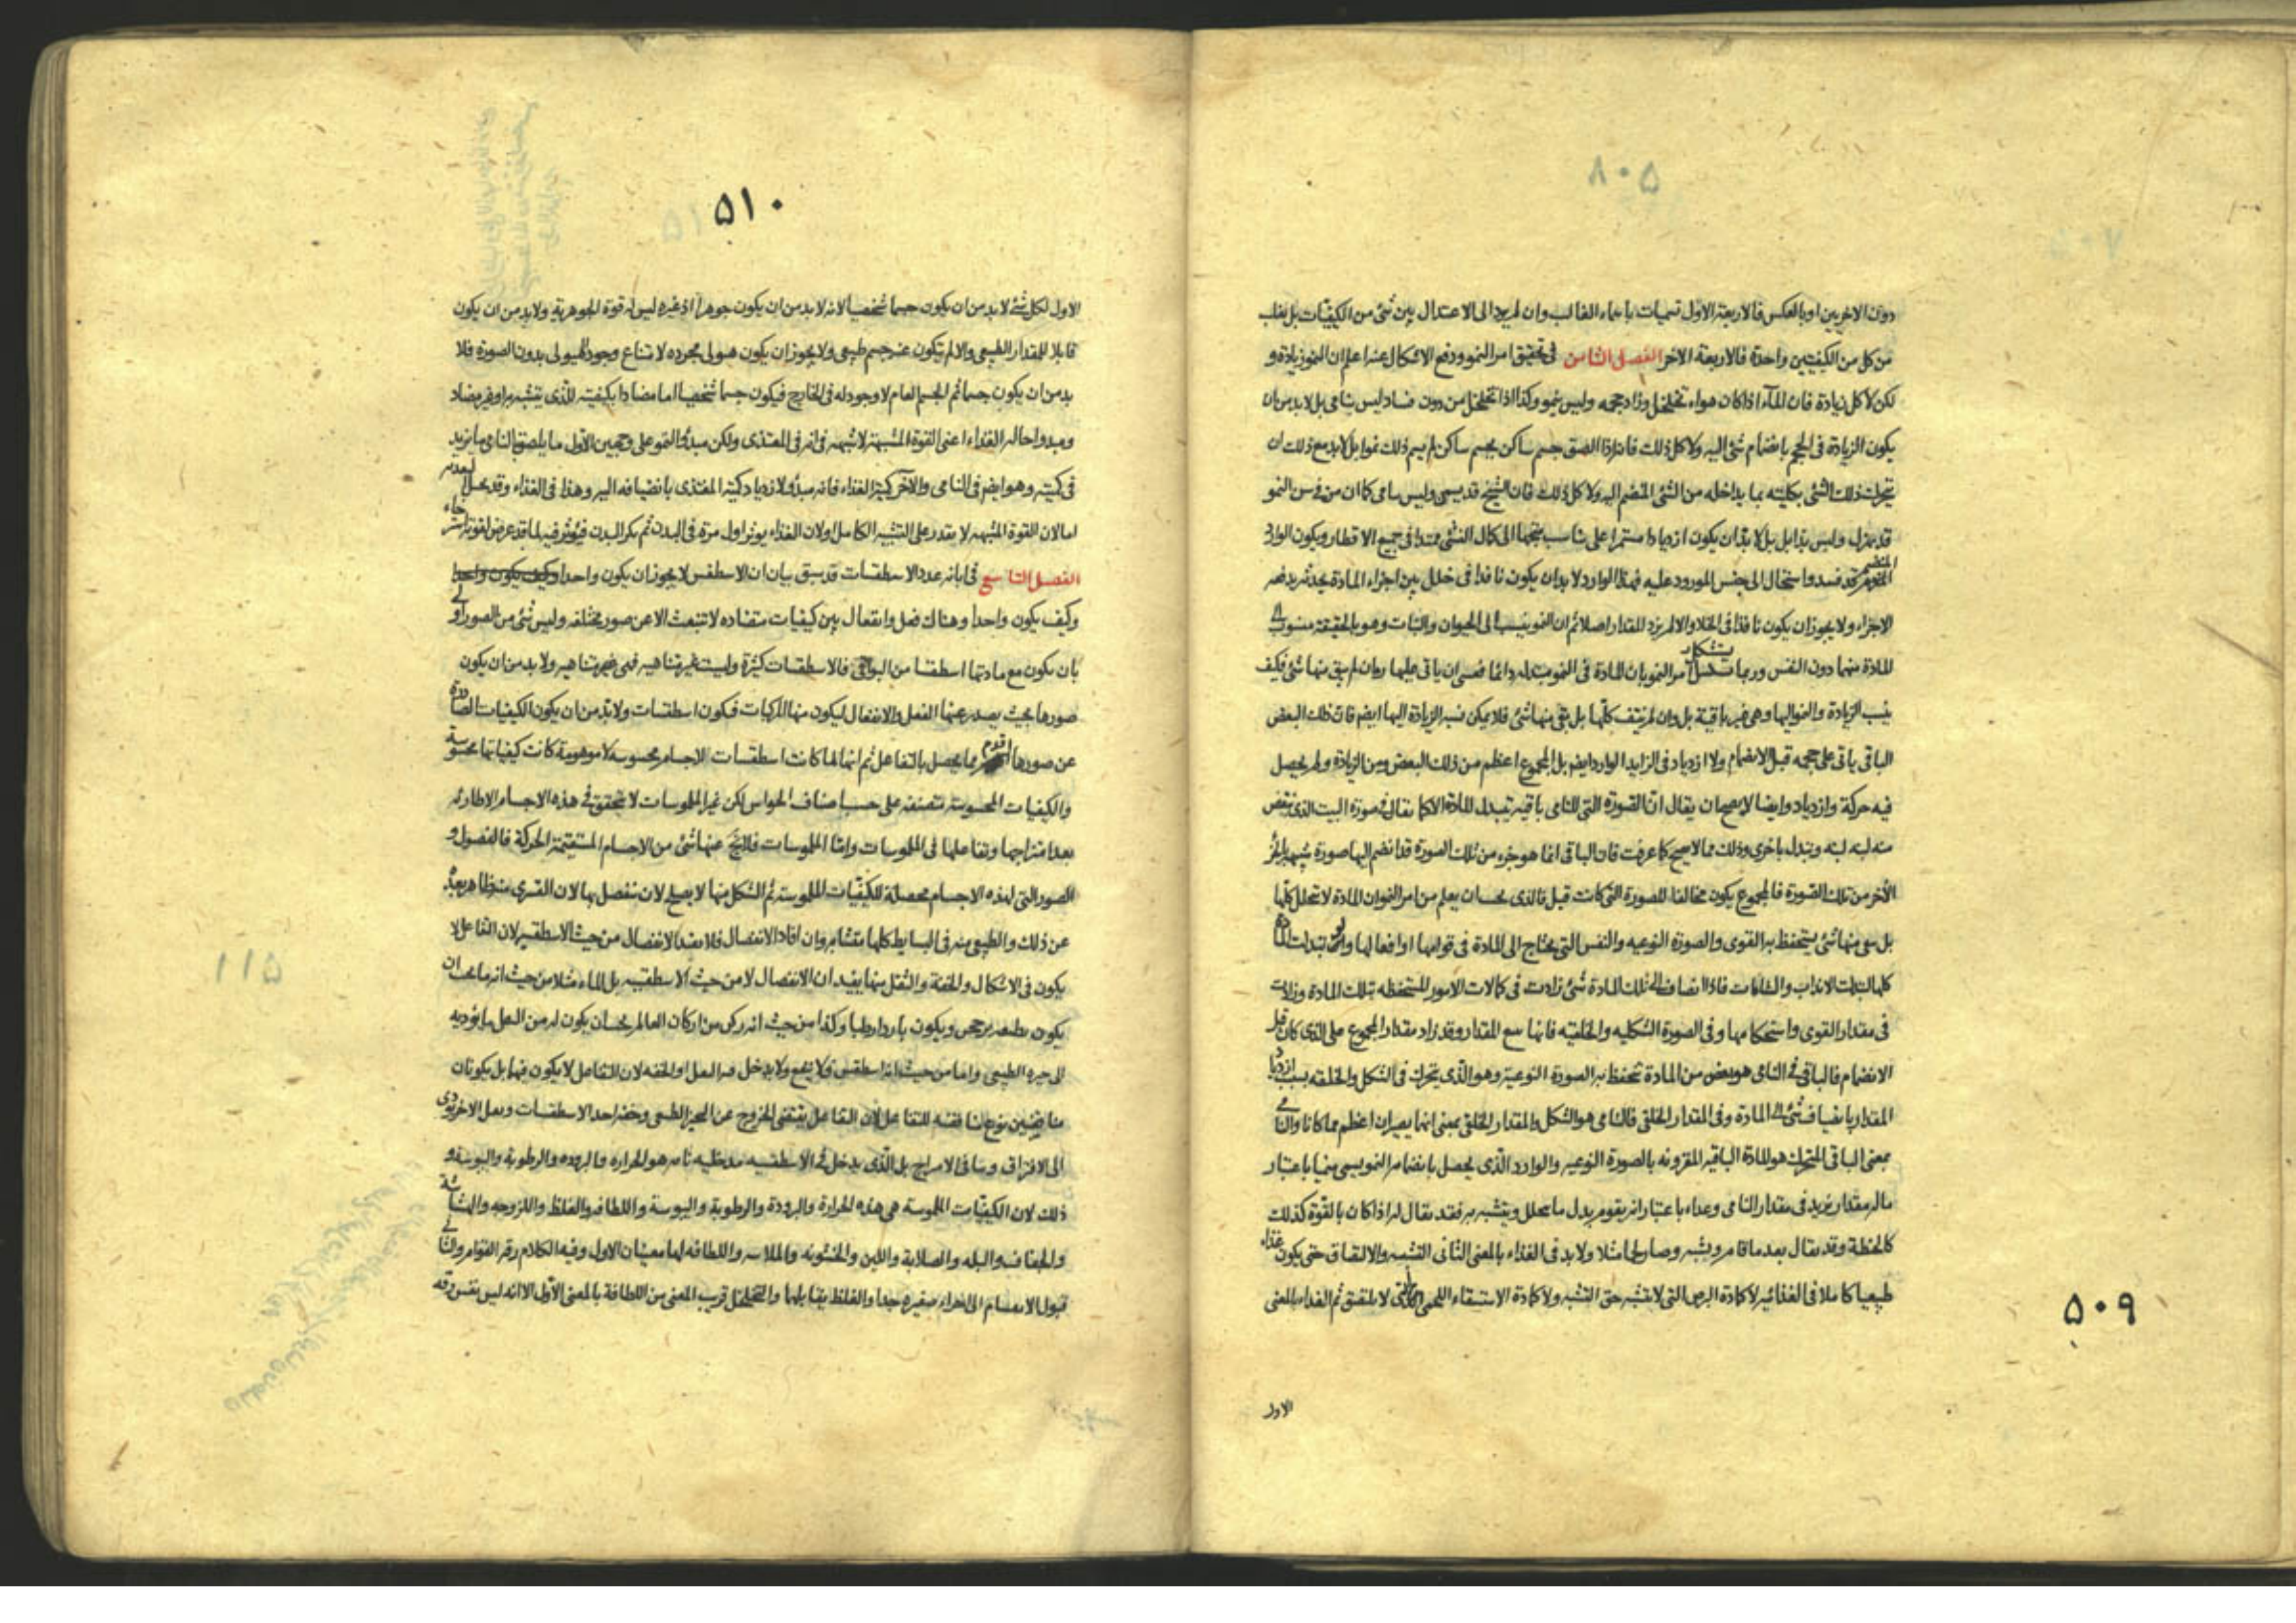 دون الاخريين او بالعكس فالاربعة الاول تسميات باسماء الغالب وان لم يرد الى الاعتدال بين شئ من الكيفيات بل يغلب
من كل من الكيفيتين واحدة فالاربعة الاخر الفصل الثامن فى تحقيق امر النمو ودفع الاشكال عنه اعلم ان النمو زيادة و
لكن لا كل زيادة فان الماء اذا كان هواء تخلخل وزاد حجمه وليس بنمو وكذا اذا تخلخل من دون فساد ليس بنامى بل لا بد من ان
يكون الزيادة فى الحجم بانضمام شئ اليه ولا كل ذلك فانه اذا الصق جسم ساكن بجسم ساكن لم يسم ذلك نموا بل لا بد مع ذلك ان
يتحرك ذلك الشئ بكليته بما يداخله من الشئ المنضم اليه ولا كل ذلك فان الشيخ قد يسمن وليس بنامى كما ان من فى سن النمو
قد يهزل وليس بذابل بل لا بد ان يكون ازديادا مستمرا على تناسب متجها الى كمال النشئ ممتدا فى جميع الاقطار ويكون الوارد
المنضم قد فسد واستحال الى جنس المورود عليه فهذا الوارد لا بد ان يكون نافذا فى خلل بين اجزاء المادة يحدثه بدفعه
الاجزاء ولا يجوز ان يكون نافذا فى الخلاء والا لم يزد المقدار اصلا ثم ان النمو ينسب الى الحيوان والنبات وهو بالحقيقة منسوب الى
المادة منهما دون النفس وربما يتشكل امر النمو بان المادة فى النمو متبدله دائما فعسى ان ياتى عليها زمان لم يبق منها شئ فكيف
ينسب الزيادة والنمو اليها وهى غير باقية بل وان لم ينتف كلها بل بقى منها شئ فلا يمكن نسبه الزيادة اليها ايضا فان ذلك البعض
الباقى باقى على حجمه قبل الانضمام ولا ازدياد فى الزايد الوارد ايضا بل المجموع اعظم من ذلك البعض ومن الزيادة ولم يحصل
فيه حركة وازدياد وايضا لا يصح ان يقال ان الصورة التى للنامى باقيه تبدل المادة الا كما يقال فى صورة البيت الذى ينقض
منه لبنه لبنه ويتبدل باخرى وذلك مما لا يصح كما عرفت فان الباقى انما هو جزء من تلك الصورة قد انضم اليها صورة شبيهة بالجزء
الاخر من تلك الصورة فالمجموع يكون مخالفا للصورة التى كانت قبل فالذى يجب ان يعلم من امر النمو ان المادة لا تتحلل كلها
بل يبقى منها شئ يستحفظ به القوى والصورة النوعيه والنفس التى يحتاج الى المادة فى قوامها او افعالها
فى مقدار القوى واستحكامها وفى الصورة الشكليه والخلقيه فانها مع المقدار وقد زاد مقدار المجموع على الذى كان قبل
الانضمام فالباقى فى النامى هو بعض من المادة تحفظ به الصورة النوعية وهو الذى يتحرك فى الشكل والخلقه بسبب ازدياد
المقدار بانضياف شئ الى المادة وفى المقدار الخلقى فالنامى هو الشكل والمقدار الخلقى بمعنى انهما يصيران اعظم مما كانا والنامى
بمعنى الباقى المتحرك هو المادة الباقيه المقرونه بالصورة النوعيه والوارد الذى يحصل بانضمامه النمو يسمى منميا باعتبار
ماله مقدار يزيد فى مقدار النامى وغذاء باعتبار انه يقوم بدل ما يتحلل ويتشبه به فقد يقال له اذا كان بالقوة كذلك
كالحنطة وقد يقال بعد ما قام وتشبه وصار لحما مثلا ولا بد فى الغذاء بالمعنى الثانى التشبه والالتصاق حتى يكون غذاء
طبيعيا كاملا فى الغذائيه لا كمادة البرص التى لا يتشبه حق التشبه ولا كمادة الاستسقاء اللحمى التى لا يلتصق ثم الغذاء بالمعنى
الاول
۵۰۹
۵۱۰
الاول لكل شئ لا بد من ان يكون جسما شخصيا لانه لا بد من ان يكون جوهرا اذ غيره ليس له قوة الجوهرية ولا بد من ان يكون
قابلا للمقدار الطبيعى والا لم يتكون عنه جسم طبيعى ولا يجوز ان يكون هيولى مجرده لامتناع وجود الهيولى بدون الصورة فلا
بد من ان يكون جسما ثم الجسم العام لا وجود له فى الخارج فيكون جسما شخصيا اما مضادا بكيفيته للذى يتشبه به او غير مضاد
ومبدء احالة الغذاء اعنى القوة المشبهة لا شبهه فى انه فى المغتذى ولكن مبدء النمو على وجهين الاول ما يلصق بالنامى ما يزيد
فى كميته وهو ايضا فى النامى والاخر كمية الغذاء فانه مبدء لازدياد كمية المغتذى بانضيافه اليه وهذا فى الغذاء
اما لان القوة المشبهه لا يقدر على التشبيه الكامل او لان الغذاء يوثر اول مرة فى البدن ثم يكر البدن فيؤثر فيه
الفصل التاسع فى ابانه عدد الاسطقسات قد سبق بيان ان الاسطقس لا يجوز ان يكون واحدا وكيف يكون واحدا
وكيف يكون واحدا وهناك فعل وانفعال بين كيفيات متضاده لا تنبعث الا عن صور مختلفه وليس شئ من الصور اولى
بان يكون مع مادتها اسطقسا من البواقى فالاسطقسات كثيرة وليست غير متناهيه فهى متناهيه ولا بد من ان يكون
صورها بحيث يصدر عنها الفعل والانفعال ليكون منها المركبات فيكون اسطقسات ولا بد من ان يكون الكيفيات الصادرة
عن صورها اقدم مما يحصل بالتفاعل ثم انها لما كانت اسطقسات لاجسام محسوسه لا موهومة كانت كيفياتها محسوسة
والكيفيات المحسوسة متصنفه على حسب اصناف الحواس لكن غير الملموسات لا يتحقق فى هذه الاجسام الا طارئه
بعد امتزاجها وتفاعلها فى الملموسات واما الملموسات فلا يخ عنها شئ من الاجسام المستقيمة الحركة فالفصول و
الصور التى لهذه الاجسام محصلة للكيفيات الملموسة ثم الشكل منها لا يصلح لان تنفصل بها لان القسرى منه ظاهر بعده
عن ذلك والطبيعى منه فى البسايط كلها متشابه وان افاد الانفصال فلا يفيد الانفصال من حيث الاسطقسيه لان التفاعل لا
يكون فى الاشكال والخفة والثقل منها يفيدان الانفصال لا من حيث الاسطقسيه بل الماء مثلا من حيث انه ماء يجب ان
يكون باردا رطبا وكذا من حيث انه ركن من اركان العالم يجب ان يكون له من الثقل ما يؤديه
الى حيزه الطبيعى واما من حيث انه اسطقس فلا ينفع ولا يدخل فيه الثقل او الخفه لان التفاعل لا يكون فيها بل يكونان
مناقضين نوع مناقضه للتفاعل لان التفاعل يقتضى الخروج عن الحيز الطبيعى وخفه احد الاسطقسات وثقل الاخر يؤدى
الى الافتراق وينافى الامتزاج بل الذى يدخل فى الاسطقسيه مدخليه تامه هو الحراره والبروده والرطوبة واليبوسة و
ذلك لان الكيفيات الملموسة هى هذه الحرارة والبرودة والرطوبة واليبوسة واللطافه والغلظ واللزوجه والهشاشة
والجفاف والبله والصلابة واللين والخشونه والملاسه واللطافه لها معنيان الاول وفيه الكلام رقه القوام والثانى
قبول الانقسام الى اجزاء صغيره جدا والغلظ يقابلها والتخلخل قريب المعنى من اللطافة بالمعنى الاول الا انه ليس نفس رقه